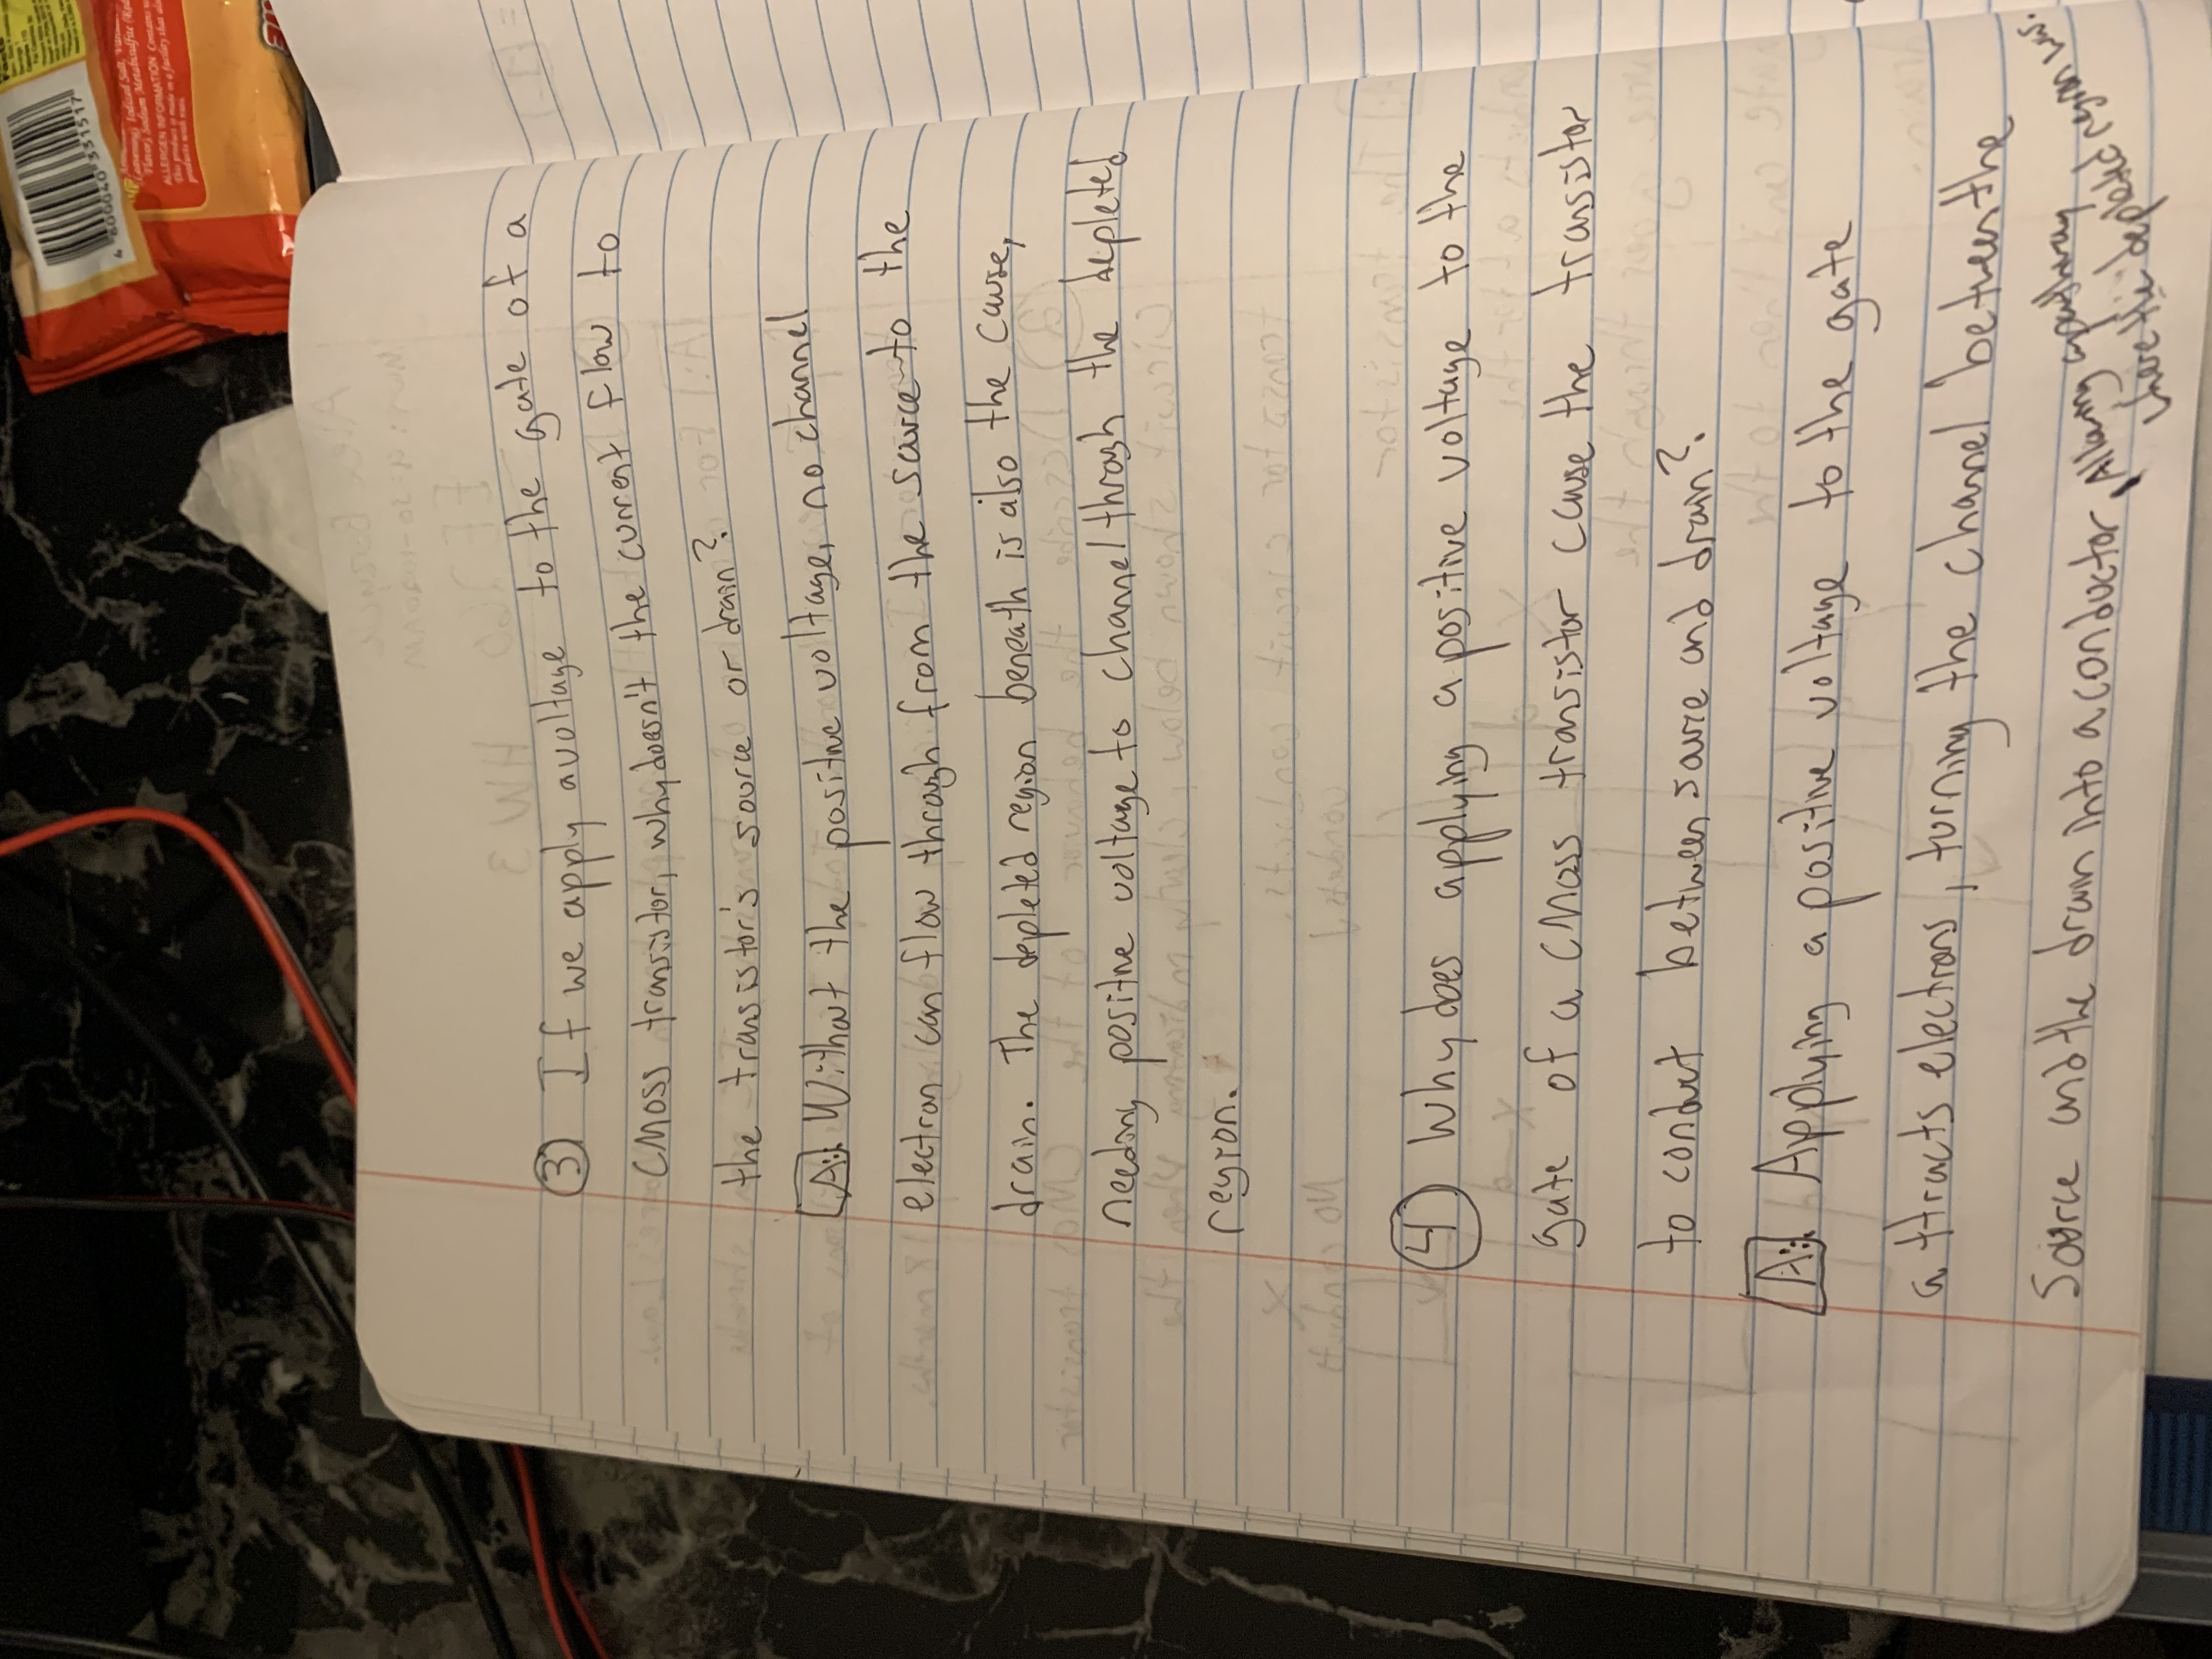 ③ If we apply a voltage to the gate of a
CMOSS transistor, why doesn't the current flow to
the transistor's source or drain?
A: Without the positive voltage, no channel
electron can flow through from the source to the
drain. The depleted region beneath is also the cause,
needing positive voltage to channel through the depleted
region.
④ Why does applying a positive voltage to the
gate of a CMOSS transistor cause the transistor
to conduct between source and drain?
A: Applying a positive voltage to the gate
attracts electrons, turning the channel between the
Source and the drain into a conductor, Allowing a pathway
where the depleted region was.
4 800040 331517
ALLERGEN INFORMATION